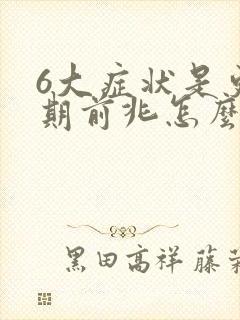 6大症状是
期前兆怎麼
黑田高祥 藤